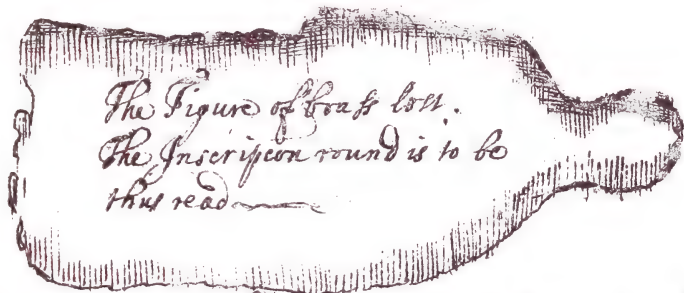 The Figure of brass lost.
The Inscripcon round is to be
thus read